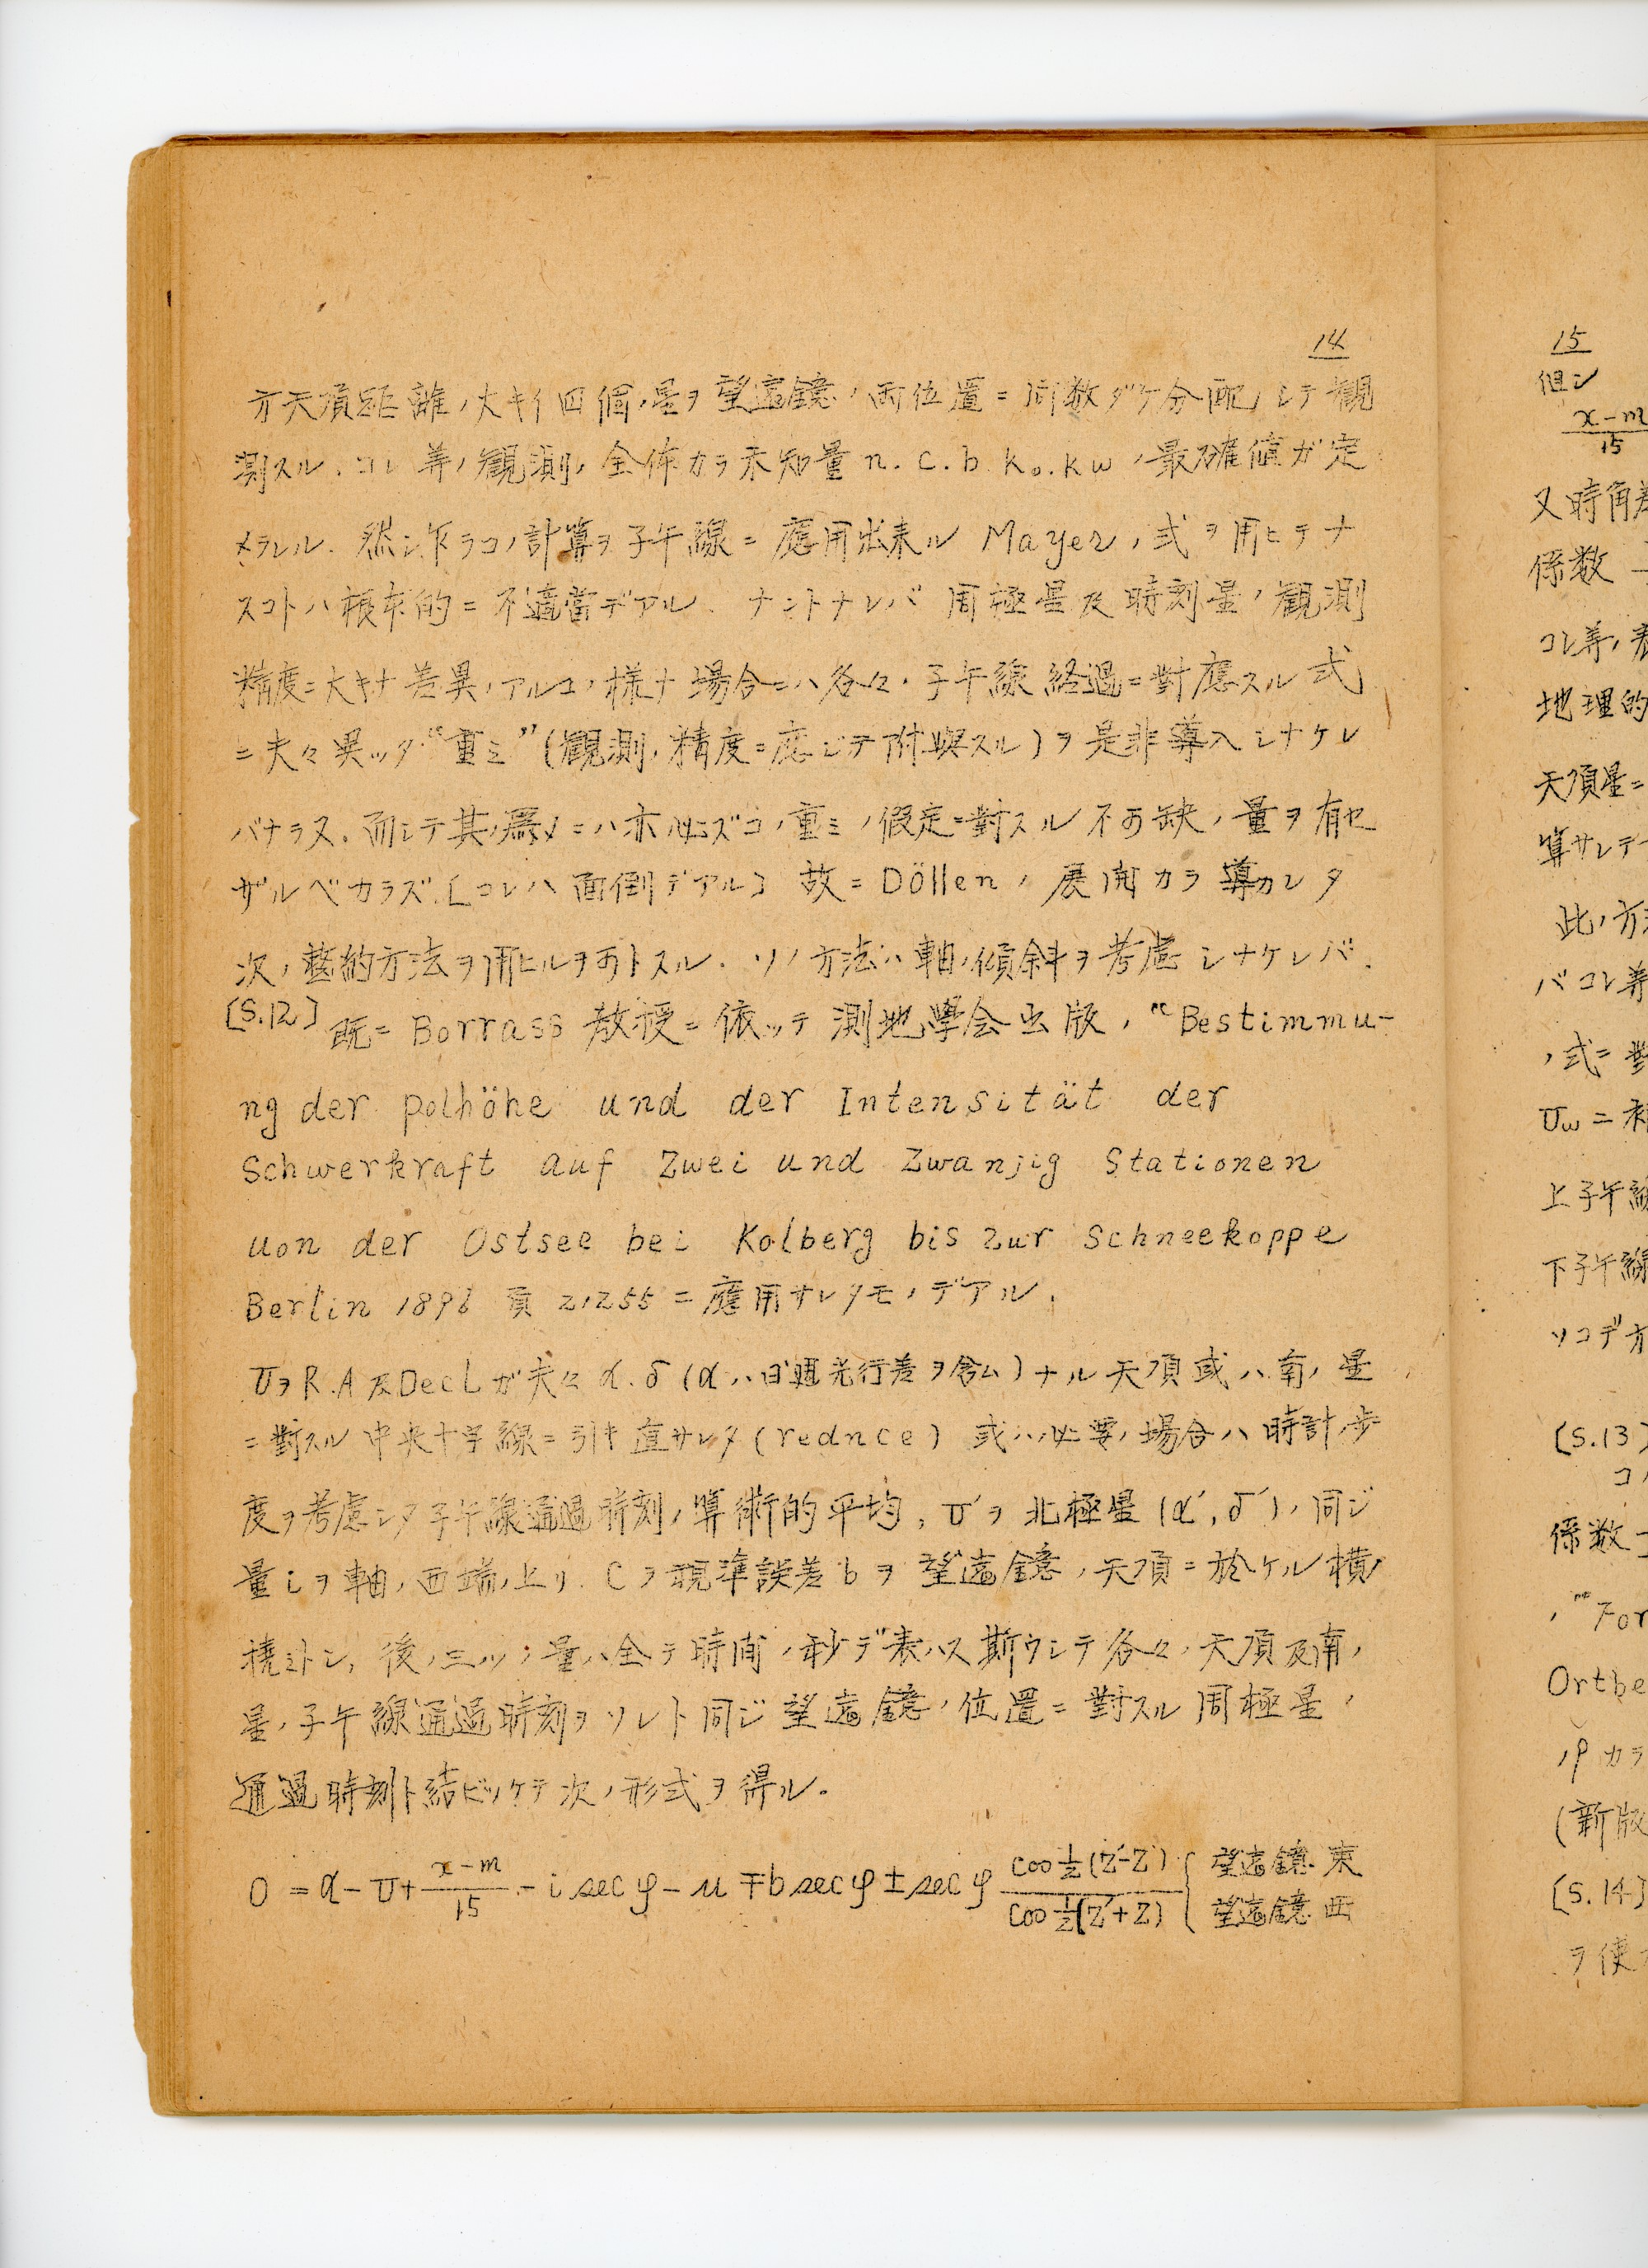 14
方天頂距離ノ大キイ四個ノ星ヲ望遠鏡ノ両位置ニ同数ダケ分配シテ観
測スル.コレ等ノ観測ノ全体カラ未知量 n. c. b. k₀. kw ノ最確値ガ定
メラレル. 然シ乍ラコノ計算ヲ子午線ニ應用出来ル Mayer ノ式ヲ用ヒテナ
スコトハ根本的ニ不適當デアル. ナントナレバ 周極星及時刻星ノ観測
精度ニ大キナ差異ノアルコノ様ナ場合ニハ各々ノ子午線経過ニ對應スル式
ニ夫々異ッタ“重ミ”(観測ノ精度ニ應ジテ附與スル)ヲ是非導入シナケレ
バナラヌ. 而シテ其ノ爲メニハ亦必ズコノ重ミノ假定ニ對スル不可缺ノ量ヲ有セ
ザルベカラズ.[コレハ面倒デアル] 故ニ Döllen ノ展開カラ導カレタ
次ノ整約方法ヲ用ヒルヲ可トスル. ソノ方法ハ軸ノ傾斜ヲ考慮シナケレバ.
[S.12] 既ニ Borrass 教授ニ依ッテ測地學会出版ノ “Bestimmu-
ng der polhöhe und der Intensität der
Schwerkraft auf Zwei und Zwanjig Stationen
uon der Ostsee bei Kolberg bis zur Schneekoppe
Berlin 1896 頁 212 55 ニ應用サレタモノデアル.
UヲR.A及Declガ夫々α.δ(αハ日週光行差ヲ含ム)ナル天頂或ハ南ノ星
ニ對スル中央十字線ニ引キ直サレタ(rednce) 或ハ必要ノ場合ハ時計ノ歩
度ヲ考慮シタ子午線通過時刻ノ算術的平均, U′ヲ北極星(α′,δ′)ノ同ジ
量 i ヲ軸ノ西端ノ上リ. Cヲ視準誤差 b ヲ望遠鏡ノ天頂ニ於ケル横
撓ミトシ, 後ノ三ッノ量ハ全テ時間ノ秒デ表ハス斯ウシテ各々ノ天頂及南ノ
星ノ子午線通過時刻ヲソレト同ジ望遠鏡ノ位置ニ對スル周極星ノ
通過時刻ト結ビツケテ次ノ形式ヲ得ル.
0 = α − U + (x−m)/15 − i sec φ − u ∓ b sec φ ± sec φ cos ½(Z′−Z)/cos ½(Z′+Z) { 望遠鏡 東
望遠鏡 西
15
但シ
x−m/15
又時角
係数
コレ等ノ
地理的
天頂星ニ
算サレテ
此ノ方
バコレ等
ノ式ニ
Uw =
上子午線
下子午線
ソコデ方
[S.13]
コノ
係数
ノ “For
Orthe
ノφカラ
(新版
[S.14]
ヲ使